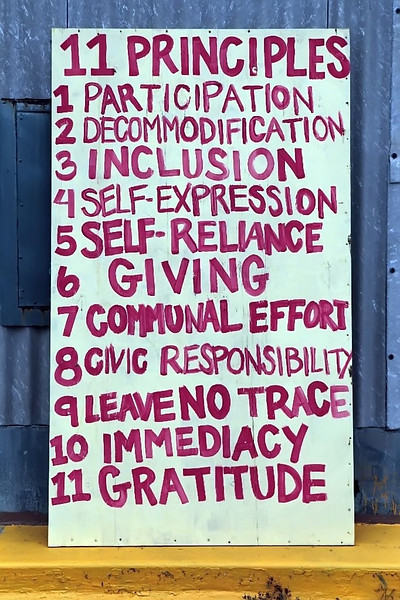 11 PRINCIPLES
1 PARTICIPATION
2 DECOMMODIFICATION
3 INCLUSION
4 SELF-EXPRESSION
5 SELF-RELIANCE
6 GIVING
7 COMMUNAL EFFORT
8 CIVIC RESPONSIBILITY
9 LEAVE NO TRACE
10 IMMEDIACY
11 GRATITUDE